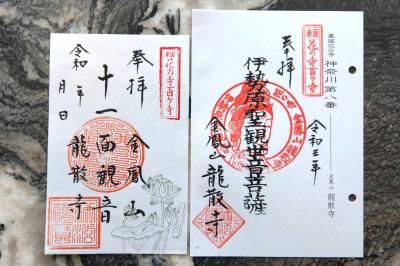 東国花の寺百ヶ寺
奉拝
十一面観音
令和 年 月 日
金鳳山
龍散寺
東国花の寺
神奈川第八番
金鳳山 龍散寺
花の寺百ヶ寺
奉拝
伊勢原聖観世音菩薩
令和三年
金鳳山龍散寺